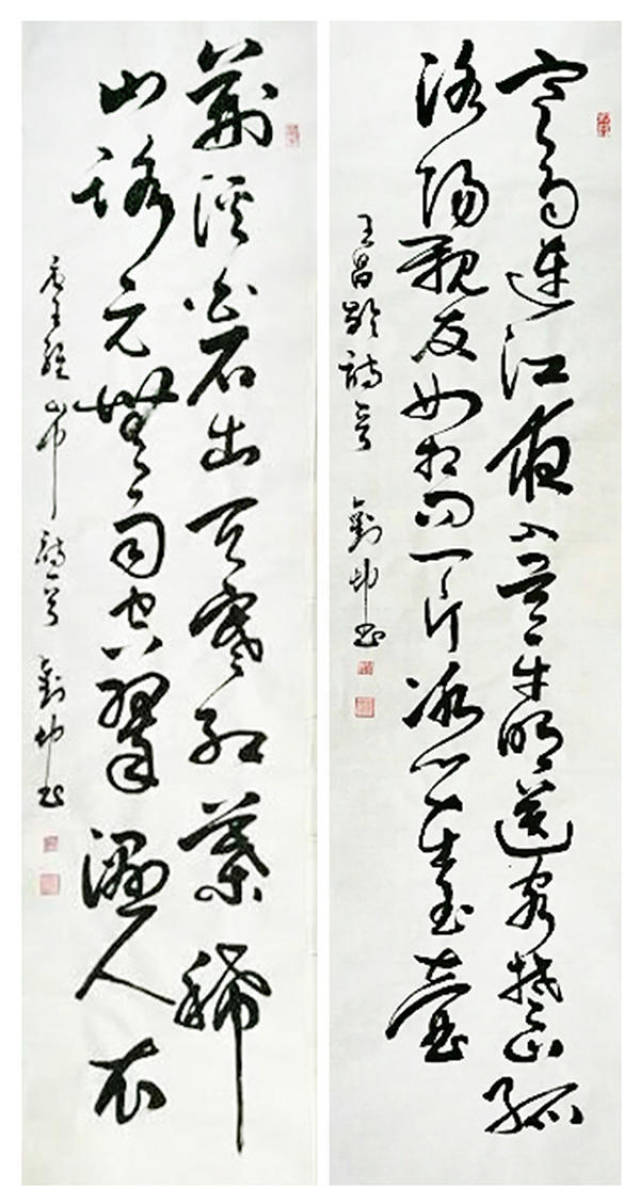 寒雨連江夜入吳平明送客楚山孤
洛陽親友如相問一片冰心在玉壺
王昌齡詩 劉 書
荊溪白石出天寒紅葉稀
山路元無雨空翠濕人衣
唐王維山中詩 劉 書